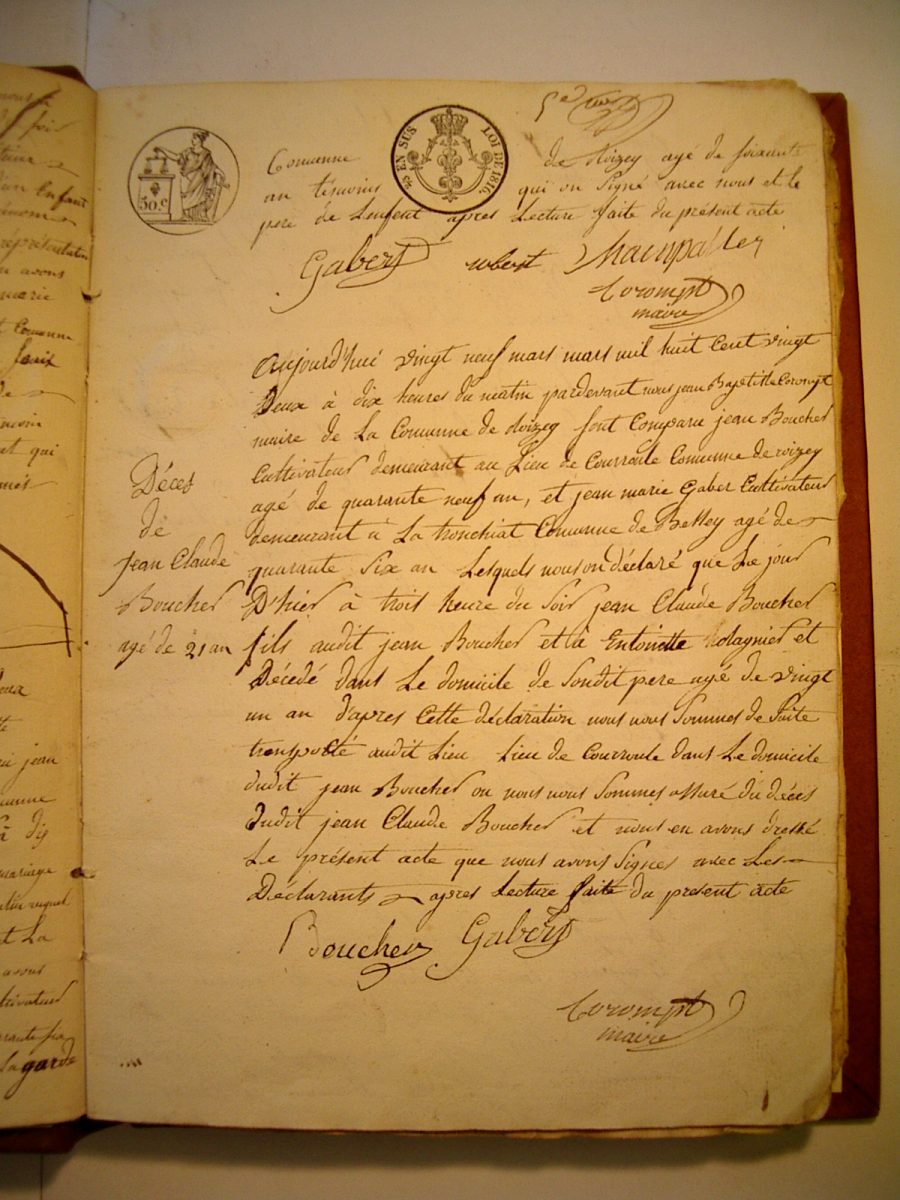 5e
EN SUS LOI DE 1816
50.c
Commune de Roizey agé de soixante
an temoins qui on Signé avec nous et le
pere de Lenfent apres Lecture faite du présent acte
Gabert robert Champallier
Corompt
maire
Aujourd'hui vingt neuf mars mars mil huit Cent vingt
Deux à dix heures du matin pardevant nous jean Baptiste Corompt
maire de La Commune de Roizey sont Comparu jean Boucher
Cultivateur demeurant au Lieu de Courroule Commune de roizey
agé de quarante neuf an, et jean marie Gaber Cultivateur
demeurant à La tronchiat Commune de Bessey agé de
quarante Six an Lesquels nous on déclaré que Le jour
D'hier à trois heure du Soir jean Claude Boucher
fils audit jean Boucher et à Entoinette et
Décédé dans Le domicile de Sondit pere agé de vingt
un an d'apres Cette déclaration nous nous Sommes de Suite
transporté audit Lieu Lieu de Courroule dans Le domicile
dudit jean Boucher ou nous nous Sommes assuré du déces
dudit jean Claude Boucher et nous en avons dressé
Le présent acte que nous avons Signés avec Les
Déclarants apres Lecture faite du present acte
Boucher Gabert
Corompt
maire
Déces
de
Jean Claude
Boucher
agé de 21 an
un Enfant
avons
marie
Commune
qui
jean
mariage
et La
avons
Lagarde